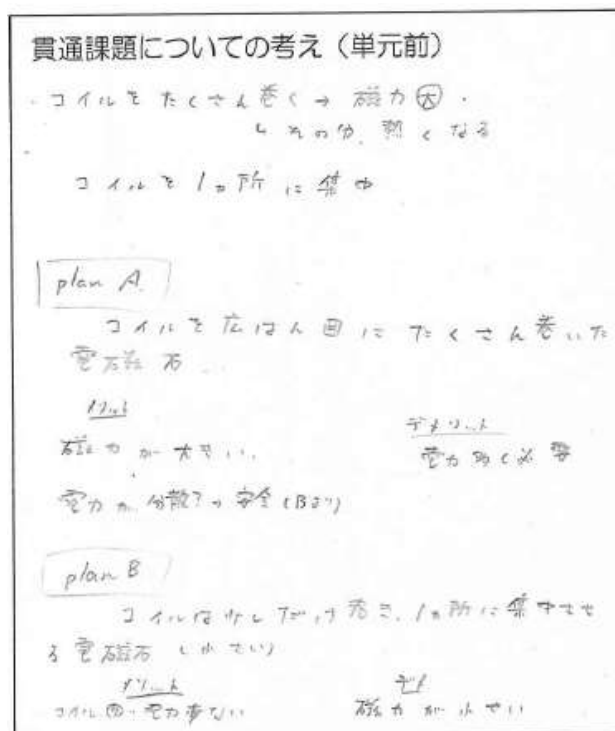 貫通課題についての考え（単元前）
・コイルをたくさん巻く→磁力大・
↳その分、熱くなる
コイルを1ヵ所に集中
plan A.
コイルを広はん囲にたくさん巻いた
電磁石…
メリット
デメリット
磁力が大きい。
電力多く必要
電力が分散?→安全(Bより)
plan B
コイルは少しだけ巻き、1ヵ所に集中させ
る電磁石(小さい)
メリット
デメ
コイル・電力少ない
磁力が小さい